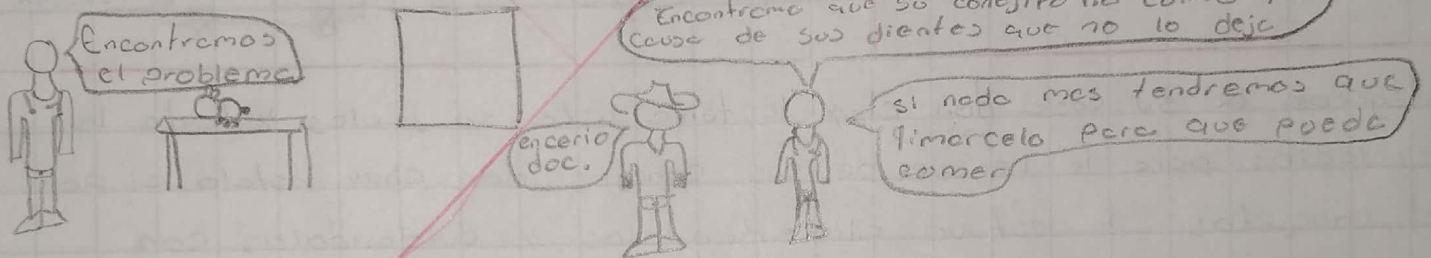 Encontremos
el problema
Encontremo que su conejito no come
causa de sus dientes que no lo deja
encerio
doc.
si nada mas tendremos que
limarcelo para que pueda
comer